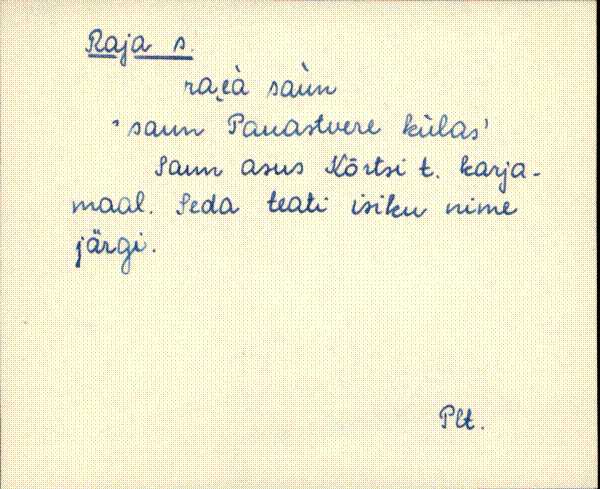 Raja s.
rai̯à saùn
'saun Pauastvere külas'
Saun asus Kõrtsi t. karja-
maal. Seda teati isiku nime
järgi.
Plt.